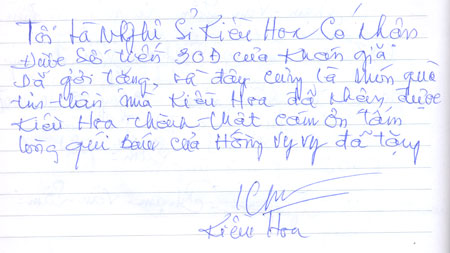 Tôi là Nghệ Sĩ Kiều Hoa Có nhân
Được Số tiền 30Đ của Khán giả
Đã gởi tặng, và đây cũng là món quà
tin thần mà Kiều Hoa đã nhân được
Kiều Hoa thành thật cám ơn tâm
lòng quí báu của Hồng Vy Vy đã tặng
Kiều Hoa